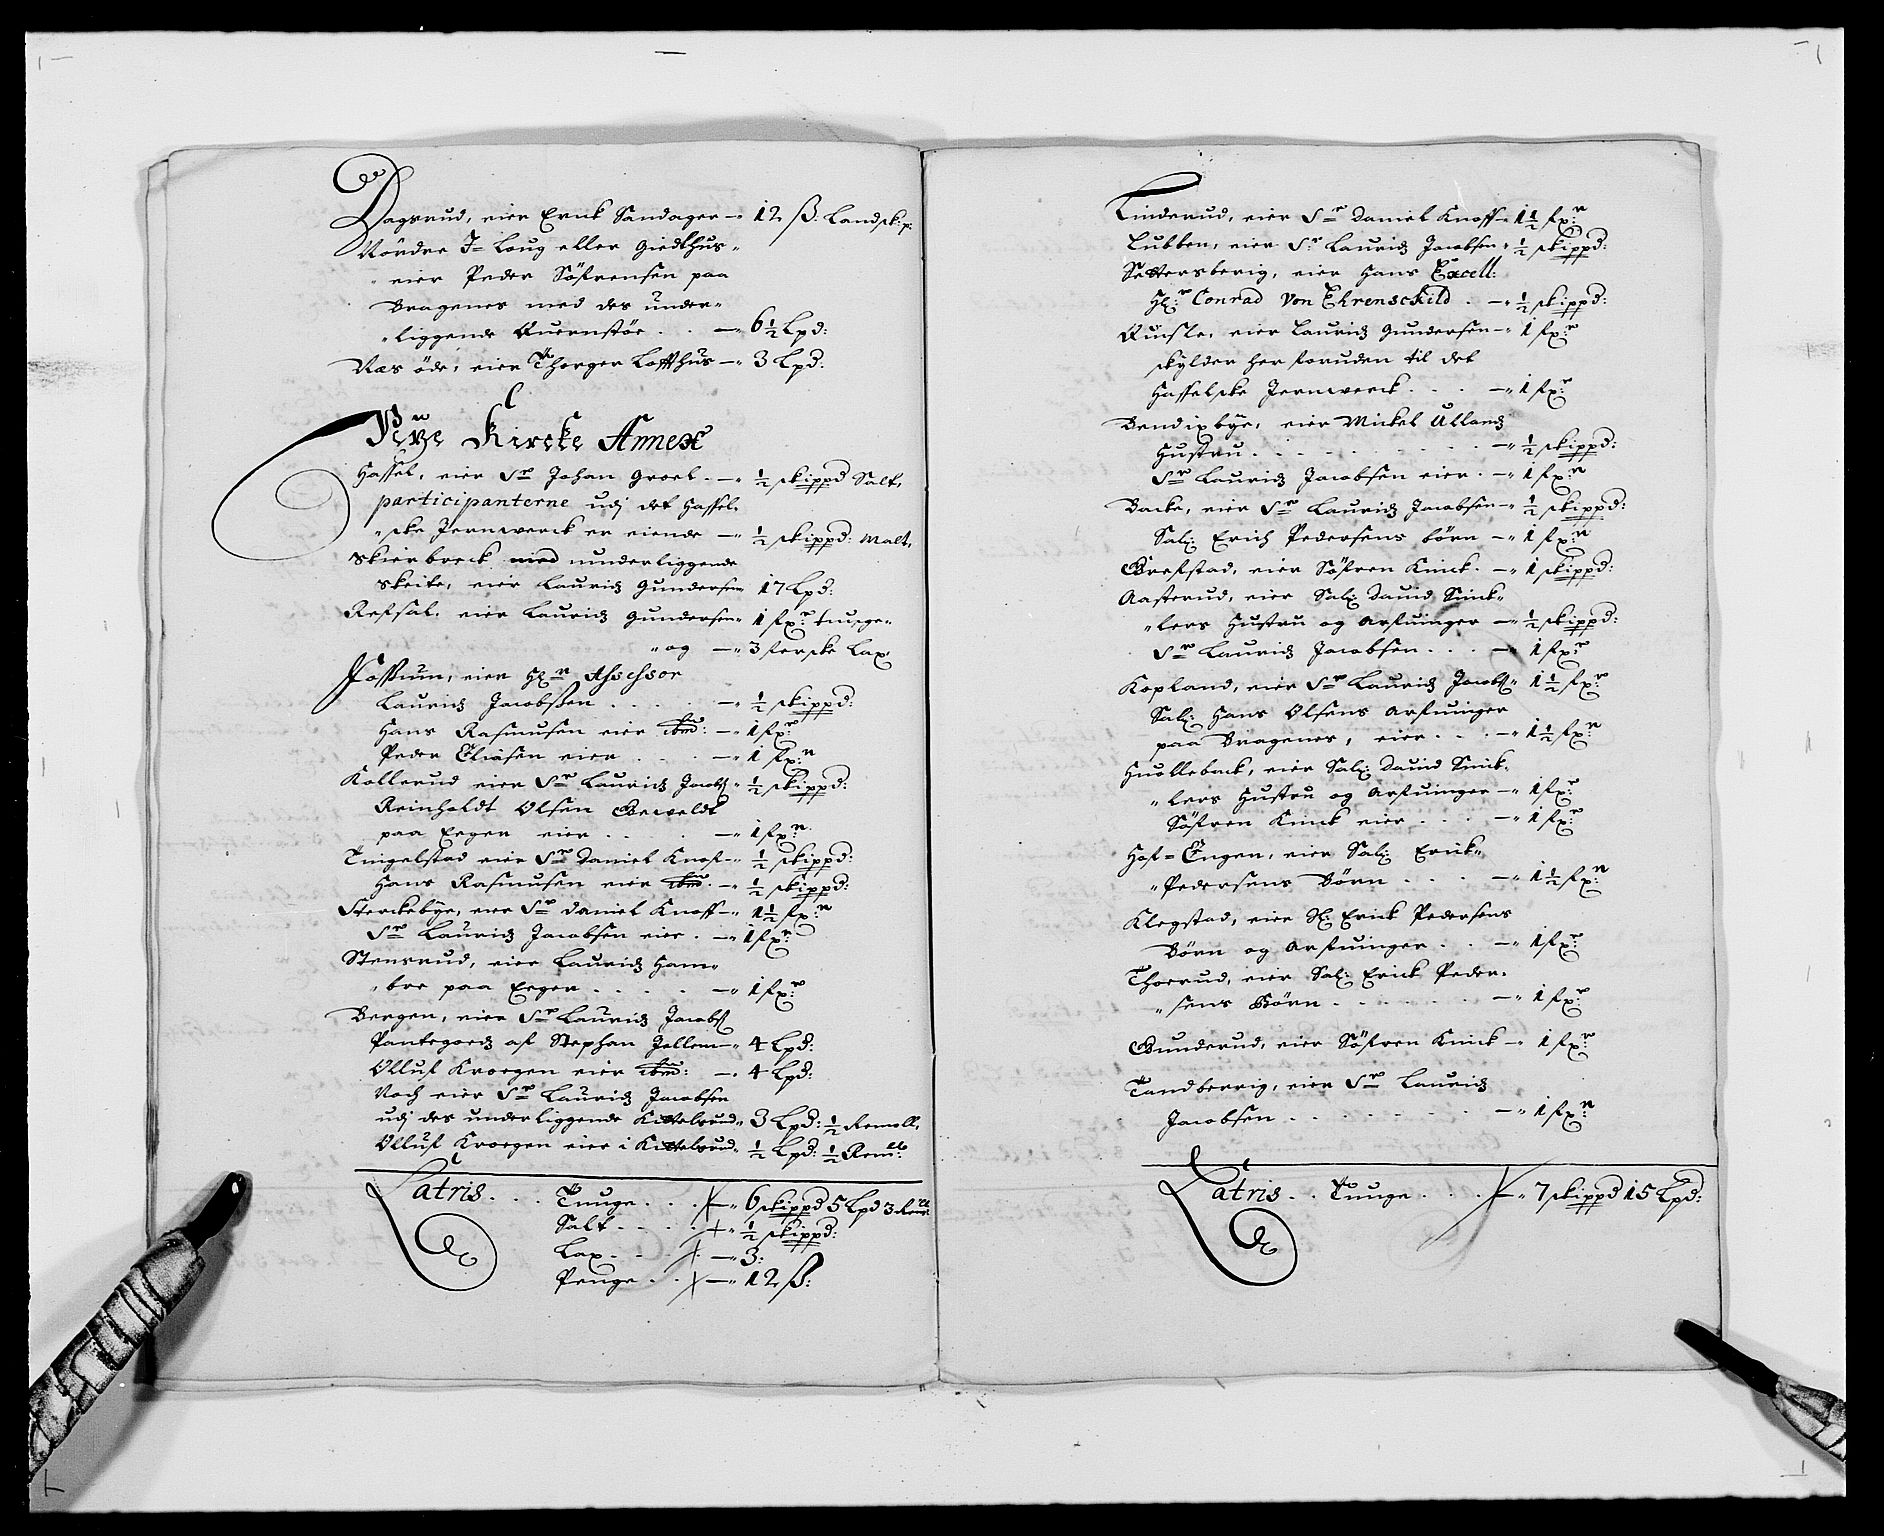 Dagsrud, eier Erick Sandager — 12 ß: Landsk:p:
Nördre J= Loug eller Giedthus„
„ eier Peder Söfrensen paa
Bragenes med des under„
„liggende Quernstöe . . — 6½ Lpd:
Næs öde, eier Thorger Loffthus — 3 Lpd:
Kircke Annex
Hassel, eier Sr Johan Groel . — ½ skippd Salt,
participanterne udj det Hassel„
„ske Jernwerck er eiende — ½ skippd: Malt,
Skierbreck med underliggende
Skeite, eier Lauridz Gundersen 17 Lpd:
Refsal, eier Lauridz Gundersen„ 1 fxr: tunge„
„ og — 3 ferske Lax,
Fossum, eier Hl:r Assessor
Lauridz Jacobsen . . . . — ½ skippd:
Hans Rasmusen eier ibm: — 1 fxr:
Peder Eliasen eier . . . — 1 fxr:
Kollerud eier Sr Lauridz Jacobs„ ½ skippd:
Reinholdt Olsen
paa Eeger eier . . . . — 1 fxr:
Tingelstad eier Sr Daniel Knof — ½ skippd:
Hans Rasmusen eier ibm: — ½ skippd:
Sterckebye, eier Sr Daniel Knoff — 1½ fxr:
Sr Lauridz Jacobsen eier . — 1 fxr:
Stensrud, eier Lauridz Ham„
„bre paa Eeger . . . . . — 1 fxr:
Bergen, eier Sr Lauridz Jacobs
Pantegodz af Stephan Jellem — 4 Lpd:
Olluf Kroegen eier ibm: — 4 Lpd:
Noch eier Sr Lauridz Jacobsen
udj des underliggende Kittelsrud„ 3 Lpd: ½ Remoll,
Olluf Kroegen eier i Kittelsrud„ ½ Lpd: ½ Rem:
Latris . . . Tunge . . . — 6 skippd 5 Lpd 3 Rem:
Salt . . . . — ½ skippd:
Lax . . . . — 3:
Penge . . — 12 ß:
Linderud, eier Sr Daniel Knoff — 1½ fxr:
Lubben, eier Sr Lauridz Jacobsen„ ½ skippd:
Settersberig, eier Hans Excell:
Hl:r Conrad Von Ehrenschild . — ½ skippd:
eier Lauridz Gundersen — 1 fxr:
skylder her foruden til det
Hasselske Jernwerck . . . — 1 fxr:
Bendixbye, eier Mickel Ullandz
Hustru . . . . . . . . . — ½ skippd:
Sr Lauridz Jacobsen eier . — 1 fxr:
Backe, eier Sr Lauridz Jacobsen — ½ skippd:
Sal: Erich Pedersens börn — 1 fxr:
Grefstad, eier Söfren Kinck . — 1 skippd:
Aasterud, eier Sal: David Sinck„
„lers Hustru og Arfuinger — ½ skippd:
Sr Lauridz Jacobsen . . . — 1 fxr:
Kopland, eier Sr Lauridz Jacobs„ 1½ fxr:
Sal: Hans Olsens Arfuinger
paa Bragenes, eier . . . — 1½ fxr:
Huolleback, eier Sal: David Sinck„
„lers Hustru og Arfuinger — 1 fxr:
Söfren Kinck eier . . . — 1 fxr:
Hof= Engen, eier Sal: Erick„
„Pedersens Börn . . . . — 1½ fxr:
Klegstad, eier Sl: Erick Pedersens
Börn og Arfuinger . . — 1 fxr:
Thorrud, eier Sal: Erick Peder„
„sens Börn . . . . . . . — 1 fxr:
Gunderud, eier Söfren Kinck — 1 fxr:
Tandberrig, eier Sr Lauridz
Jacobsen . . . . . . . . — 1 fxr:
Latris . . Tunge . . . . — 7 skippd 15 Lpd: